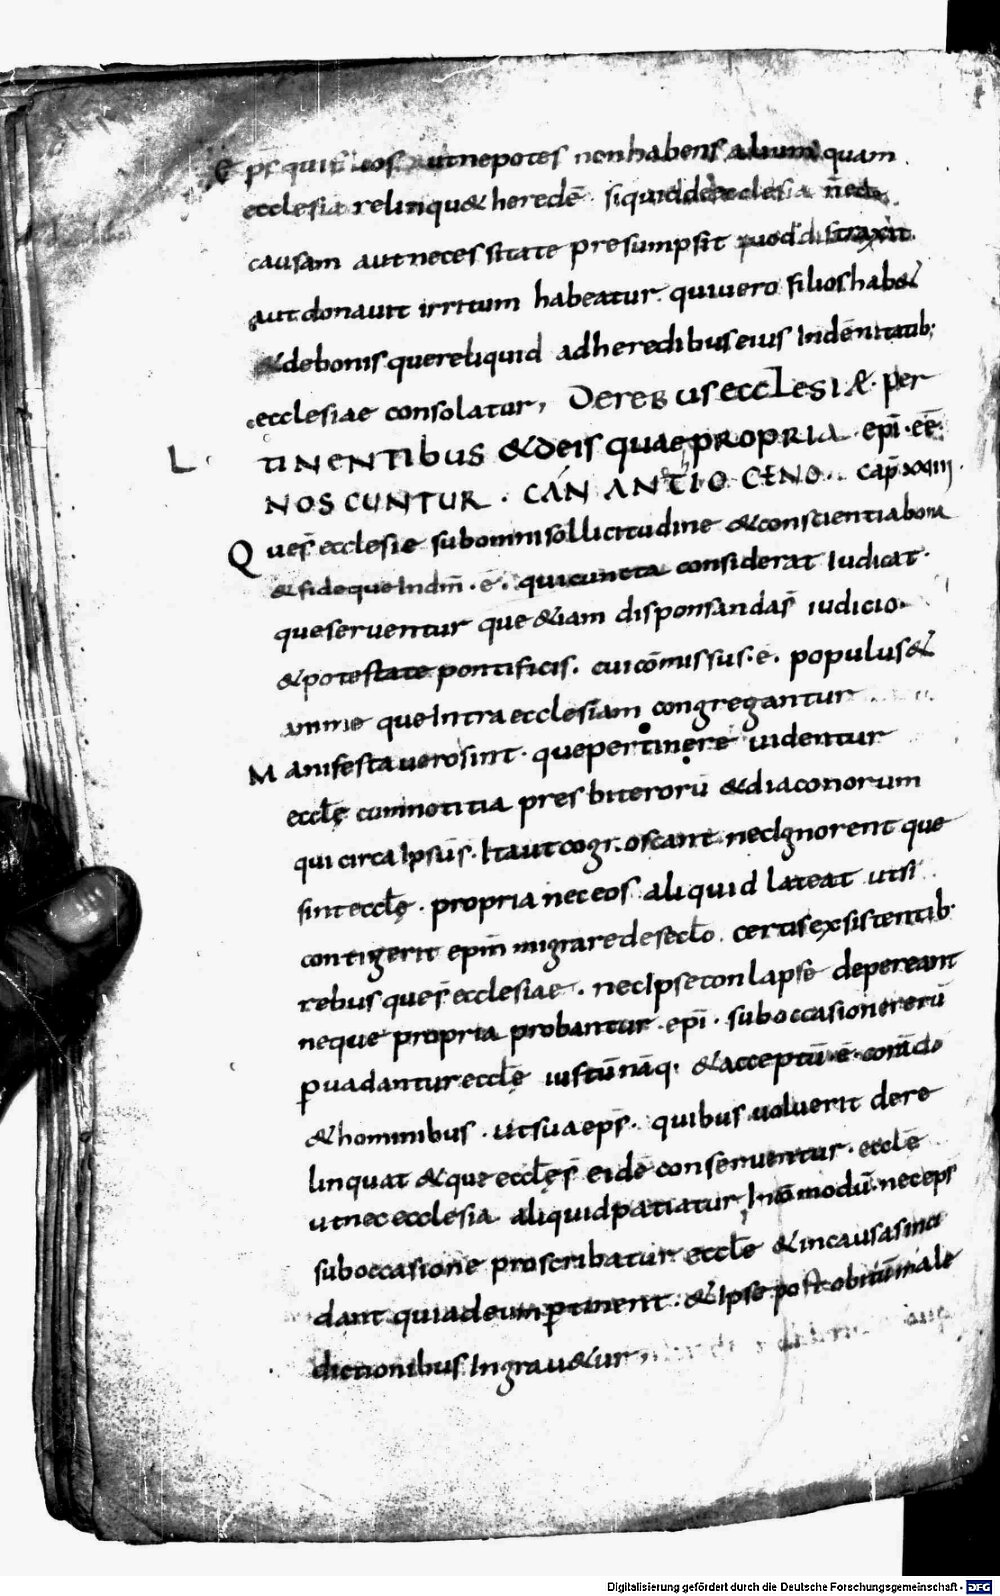 Eps qui filios aut nepotes non habens alium quam
ecclesia relinqu& heredē · siquid de ecclesia n̄ ec̄le
causam aut necessitate presumpsit quod distraxit
aut donauit irritum habeatur. qui uero filios hab&
& de bonis que reliquid ad heredibus eius Indēnitatib;
ecclesiae consolatur, De rebus ecclesiæ · per
L · tinentibus & de is quae propria · epī · eē·
noscuntur · CAN ANTIOCENO · cap̄ xxiiij ·
Que s̄ ecclesie sub omni sollicitudine & conscientia bona
& fide que In dm̄ · ē · qui cuncta considerat Iudicat ·
queseruentur que &iam disponsandas̄ iudicio·
& potestate pontificis. cui cōmissus · ē · populus &
anime que Intra ecclesiam congregantur
Manifesta uero sint · que pertinere uidentur
eccl̄ę cum notitia presbiterorū & diaconorum
qui circa Ipsūs̄ · Ita ut cognoscant nec Ignorent que
sint eccl̄ę · propria nec eos aliquid lateat ut si
contigerit epm̄ migrare de secl̄o . certis exsistentib·
rebus que s̄ ecclesiae · nec Ipse conlapse depereant
neque propria probantur · epī · sub occasione rerū
puadantur eccl̄ę iustū nāq; & acceptū · ē · corā dō
& hominibus · ut sua eps̄ · quibus uoluerit dere
linquat & que eccl̄ę s̄ eidē conseruentur · eccl̄ę
ut nec ecclesia aliquid patiatur In ōmodū · nec eps
sub occasione proscribatur eccl̄ę & in causas inci
dant qui ad eum ptinent · & Ipse post obitū male
dictionibus Ingrau&ur
Digitalisierung gefördert durch die Deutsche Forschungsgemeinschaft - DFG